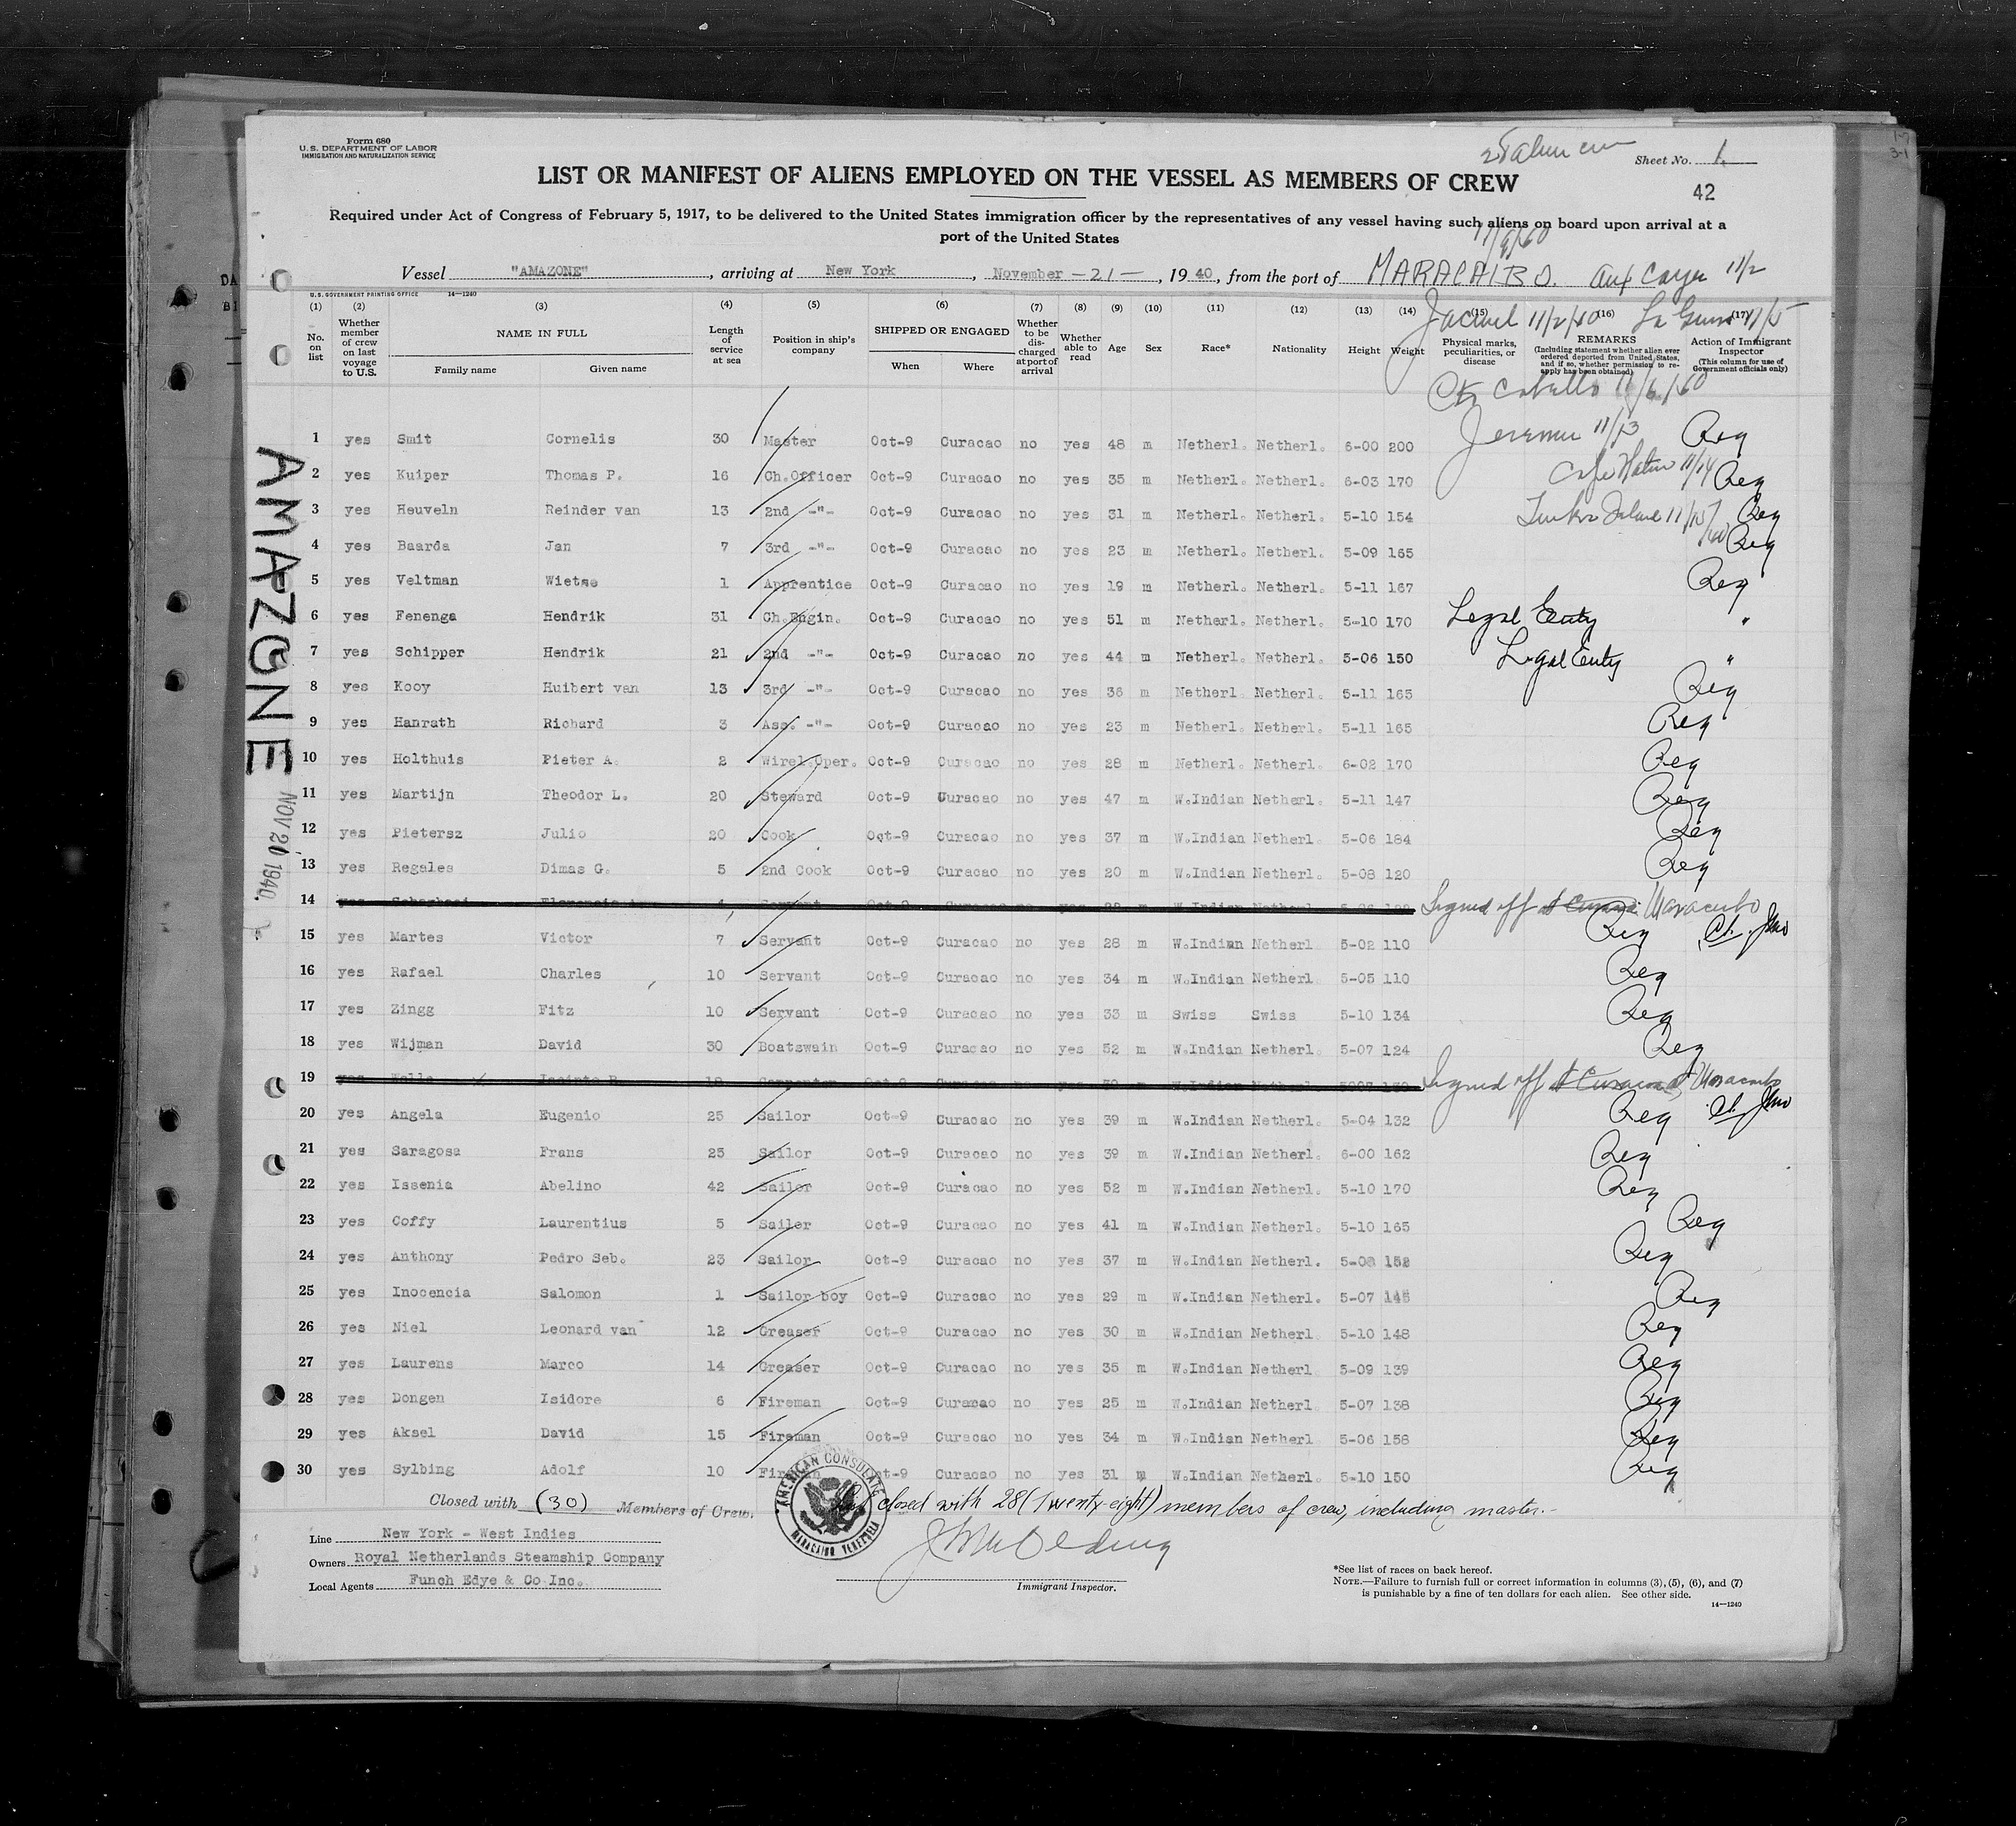 Form 680
U.S. DEPARTMENT OF LABOR
IMMIGRATION AND NATURALIZATION SERVICE
Sheet No. 1
42
LIST OR MANIFEST OF ALIENS EMPLOYED ON THE VESSEL AS MEMBERS OF CREW
Required under Act of Congress of February 5, 1917, to be delivered to the United States immigration officer by the representatives of any vessel having such aliens on board upon arrival at a
port of the United States
Vessel "AMAZONE", arriving at New York, November -21-, 1940, from the port of MARACAIBO. 11/2
U.S. GOVERNMENT PRINTING OFFICE 14—1240
(1) (2) (3) (4) (5) (6) (7) (8) (9) (10) (11) (12) (13) (14) (15) (16) (17)
No. on list
Whether member of crew on last voyage to U.S.
NAME IN FULL
Family name
Given name
Length of service at sea
Position in ship's company
SHIPPED OR ENGAGED
When
Where
Whether to be discharged at port of arrival
Whether able to read
Age
Sex
Race*
Nationality
Height
Weight
Physical marks, peculiarities, or disease
REMARKS
(Including statement whether alien ever ordered deported from United States, and if so, whether permission to reapply has been obtained)
Action of Immigrant Inspector
(This column for use of Government officials only)
Jacmel 11/2/40
Cabello 11/6/40
Jeremie 11/13
1 yes Smit Cornelis 30 Master Oct-9 Curacao no yes 48 m Netherl. Netherl. 6-00 200 Reg
11/14
2 yes Kuiper Thomas P. 16 Ch.Officer Oct-9 Curacao no yes 35 m Netherl. Netherl. 6-03 170 Reg
3 yes Heuveln Reinder van 13 2nd -"- Oct-9 Curacao no yes 31 m Netherl. Netherl. 5-10 154 Reg
4 yes Baarda Jan 7 3rd -"- Oct-9 Curacao no yes 23 m Netherl. Netherl. 5-09 165 Reg
5 yes Veltman Wietse 1 Apprentice Oct-9 Curacao no yes 19 m Netherl. Netherl. 5-11 167 Reg
6 yes Fenenga Hendrik 31 Ch.Engin. Oct-9 Curacao no yes 51 m Netherl. Netherl. 5-10 170 Legal Entry "
7 yes Schipper Hendrik 21 2nd -"- Oct-9 Curacao no yes 44 m Netherl. Netherl. 5-06 150 Legal Entry "
8 yes Kooy Huibert van 13 3rd -"- Oct-9 Curacao no yes 36 m Netherl. Netherl. 5-11 165 Reg
9 yes Hanrath Richard 3 Ass. -"- Oct-9 Curacao no yes 23 m Netherl. Netherl. 5-11 165 Reg
10 yes Holthuis Pieter A. 2 Wirel.Oper. Oct-9 Curacao no yes 28 m Netherl. Netherl. 6-02 170 Reg
11 yes Martijn Theodor L. 20 Steward Oct-9 Curacao no yes 47 m W.Indian Netherl. 5-11 147 Reg
12 yes Pietersz Julio 20 Cook Oct-9 Curacao no yes 37 m W.Indian Netherl. 5-06 184 Reg
13 yes Regales Dimas G. 5 2nd Cook Oct-9 Curacao no yes 20 m W.Indian Netherl. 5-08 120 Reg
14 Signed off at Curacao Maracaibo
15 yes Martes Victor 7 Servant Oct-9 Curacao no yes 28 m W.Indian Netherl 5-02 110 Reg
16 yes Rafael Charles 10 Servant Oct-9 Curacao no yes 34 m W.Indian Netherl 5-05 110 Reg
17 yes Zingg Fitz 10 Servant Oct-9 Curacao no yes 33 m Swiss Swiss 5-10 134 Reg
18 yes Wijman David 30 Boatswain Oct-9 Curacao no yes 52 m W.Indian Netherl. 5-07 124 Reg
19 Signed off at Curacao Maracaibo
20 yes Angela Eugenio 25 Sailor Oct-9 Curacao no yes 39 m W.Indian Netherl. 5-04 132 Reg
21 yes Saragosa Frans 25 Sailor Oct-9 Curacao no yes 39 m W.Indian Netherl. 6-00 162 Reg
22 yes Issenia Abelino 42 Sailor Oct-9 Curacao no yes 52 m W.Indian Netherl. 5-10 170 Reg
23 yes Coffy Laurentius 5 Sailer Oct-9 Curacao no yes 41 m W.Indian Netherl. 5-10 165 Reg
24 yes Anthony Pedro Seb. 23 Sailor Oct-9 Curacao no yes 37 m W.Indian Netherl. 5-08 152 Reg
25 yes Inocencia Salomon 1 Sailor boy Oct-9 Curacao no yes 29 m W.Indian Netherl. 5-07 145 Reg
26 yes Niel Leonard van 12 Greaser Oct-9 Curacao no yes 30 m W.Indian Netherl 5-10 148 Reg
27 yes Laurens Marco 14 Greaser Oct-9 Curacao no yes 35 m W.Indian Netherl 5-09 139 Reg
28 yes Dongen Isidore 6 Fireman Oct-9 Curacao no yes 25 m W.Indian Netherl 5-07 138 Reg
29 yes Aksel David 15 Fireman Oct-9 Curacao no yes 34 m W.Indian Netherl 5-06 158 Reg
30 yes Sylbing Adolf 10 Fireman Oct-9 Curacao no yes 31 m W.Indian Netherl. 5-10 150 Reg
AMAZONE
NOV 20 1940
Closed with (30) Members of Crew.
List closed with 28 (Twenty-eight) members of crew, including master.-
AMERICAN CONSULATE
MARACAIBO VENEZUELA
Line New York - West Indies
Owners Royal Netherlands Steamship Company
Local Agents Funch Edye & Co Inc.
Immigrant Inspector.
*See list of races on back hereof.
NOTE.—Failure to furnish full or correct information in columns (3), (5), (6), and (7)
is punishable by a fine of ten dollars for each alien. See other side.
14—1240